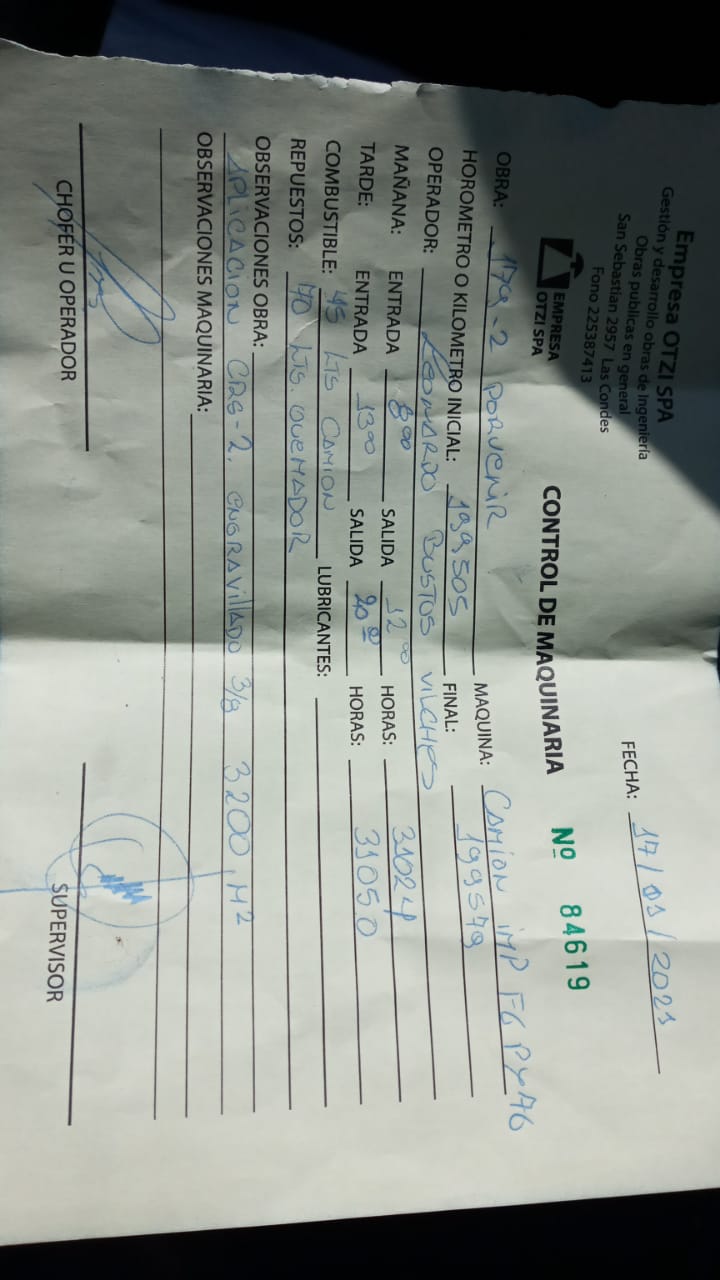 Empresa OTZI SPA
Gestión y desarrollo obras de Ingeniería
Obras publicas en general
San Sebastian 2957 Las Condes
Fono 225387413
EMPRESA
OTZI SPA
FECHA: 17/01/2021
CONTROL DE MAQUINARIA Nº 84619
OBRA: 179-2 PORVENIR MAQUINA: CAMION iMP FGPY76
HOROMETRO O KILOMETRO INICIAL: 199505 FINAL: 199579
OPERADOR: LEONARDO BUSTOS VILCHES
MAÑANA: ENTRADA 8:00 SALIDA 12:00 HORAS: 31024
TARDE: ENTRADA 13:00 SALIDA 20:00 HORAS: 31050
COMBUSTIBLE: 45 LTS CAMION LUBRICANTES:
REPUESTOS: 70 LTS. QUEMADOR
OBSERVACIONES OBRA:
APLICACION CRS-2. ENGRAVILLADO 3/8 3200 M²
OBSERVACIONES MAQUINARIA:
CHOFER U OPERADOR SUPERVISOR